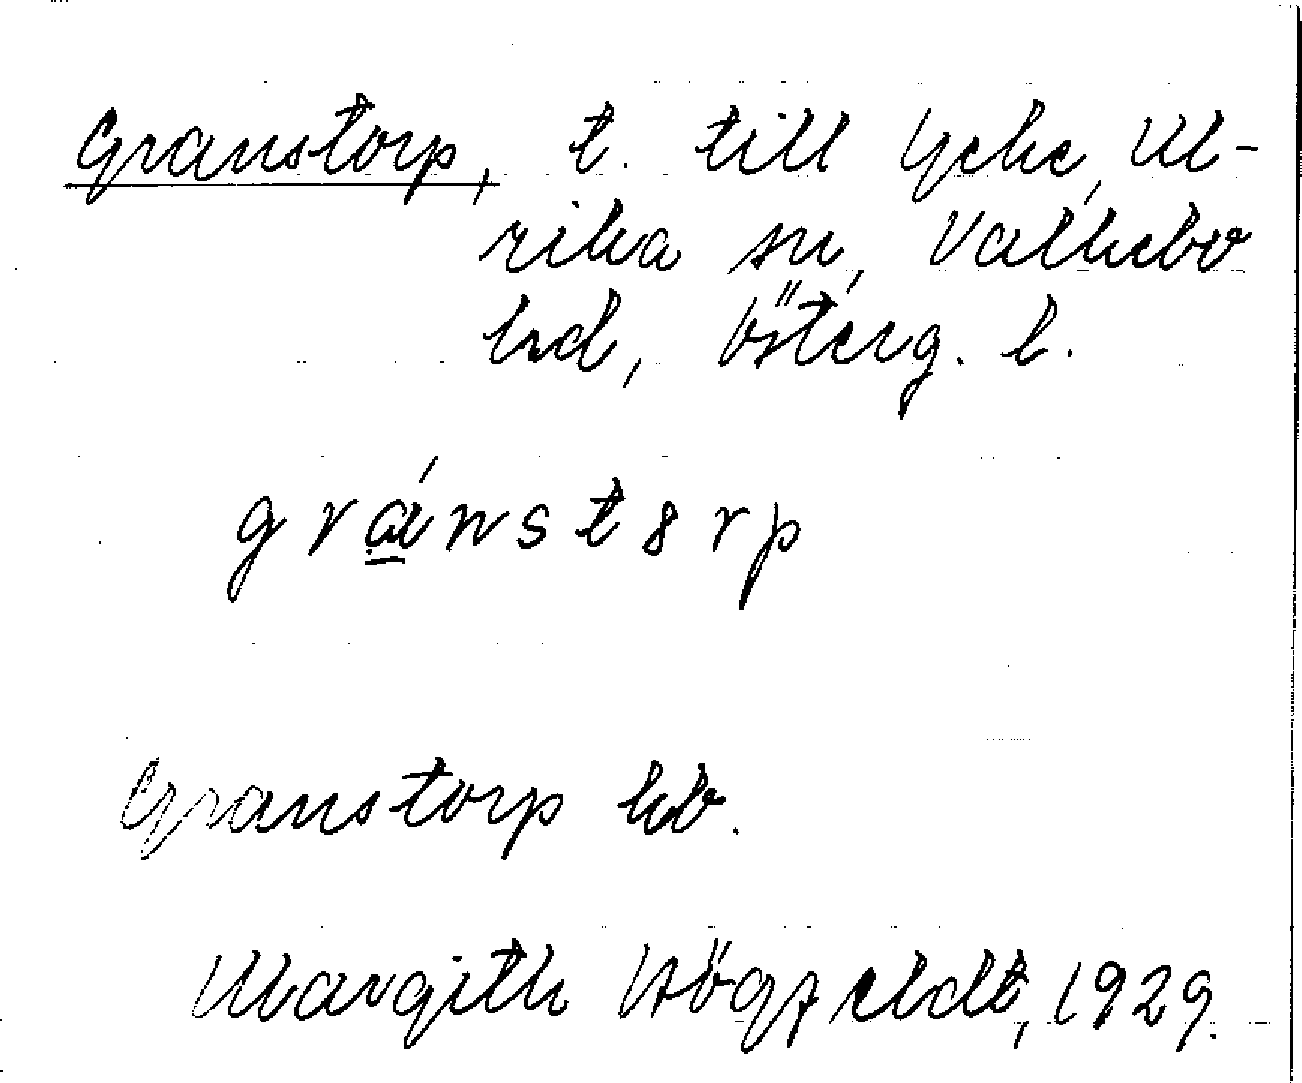 Granstorp, t. till Ycke, Ul-
rika sn, Valkebo
hrd, Österg. l.
gránst8rp
Granstorp kb.
Margith Högfeldt, 1929.